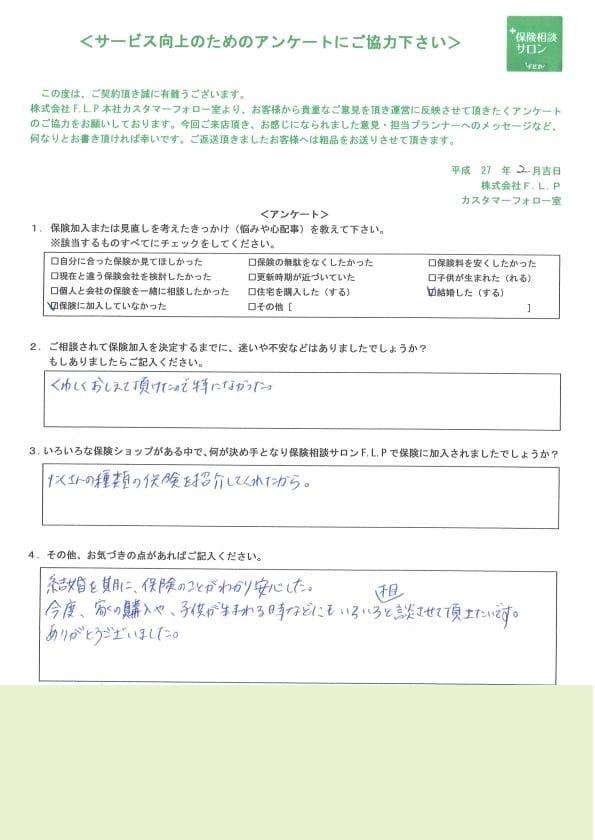 ＜サービス向上のためのアンケートにご協力下さい＞
保険相談
サロン
この度は、ご契約頂き誠に有難うございます。
株式会社F.L.P本社カスタマーフォロー室より、お客様から貴重なご意見を頂き運営に反映させて頂きたくアンケート
のご協力をお願いしております。今回ご来店頂き、お感じになられました意見・担当プランナーへのメッセージなど、
何なりとお書き頂ければ幸いです。ご返送頂きましたお客様へは粗品をお送りさせて頂きます。
平成 27 年 2 月吉日
株式会社F.L.P
カスタマーフォロー室
＜アンケート＞
1．保険加入または見直しを考えたきっかけ（悩みや心配事）を教えて下さい。
※該当するものすべてにチェックをしてください。
□自分に合った保険か見てほしかった □保険の無駄をなくしたかった □保険料を安くしたかった
□現在と違う保険会社を検討したかった □更新時期が近づいていた □子供が生まれた（れる）
□個人と会社の保険を一緒に相談したかった □住宅を購入した（する） ☑結婚した（する）
☑保険に加入していなかった □その他［ ］
2．ご相談されて保険加入を決定するまでに、迷いや不安などはありましたでしょうか？
もしありましたらご記入ください。
くわしくおしえて頂けたので特になかった。
3．いろいろな保険ショップがある中で、何が決め手となり保険相談サロンF.L.Pで保険に加入されましたでしょうか？
たくさんの種類の保険を紹介してくれたから。
4．その他、お気づきの点があればご記入ください。
結婚を期に、保険のことがわかり安心した。
今度、家の購入や、子供が生まれる時などにもいろいろと相談させて頂きたいです。
ありがとうございました。